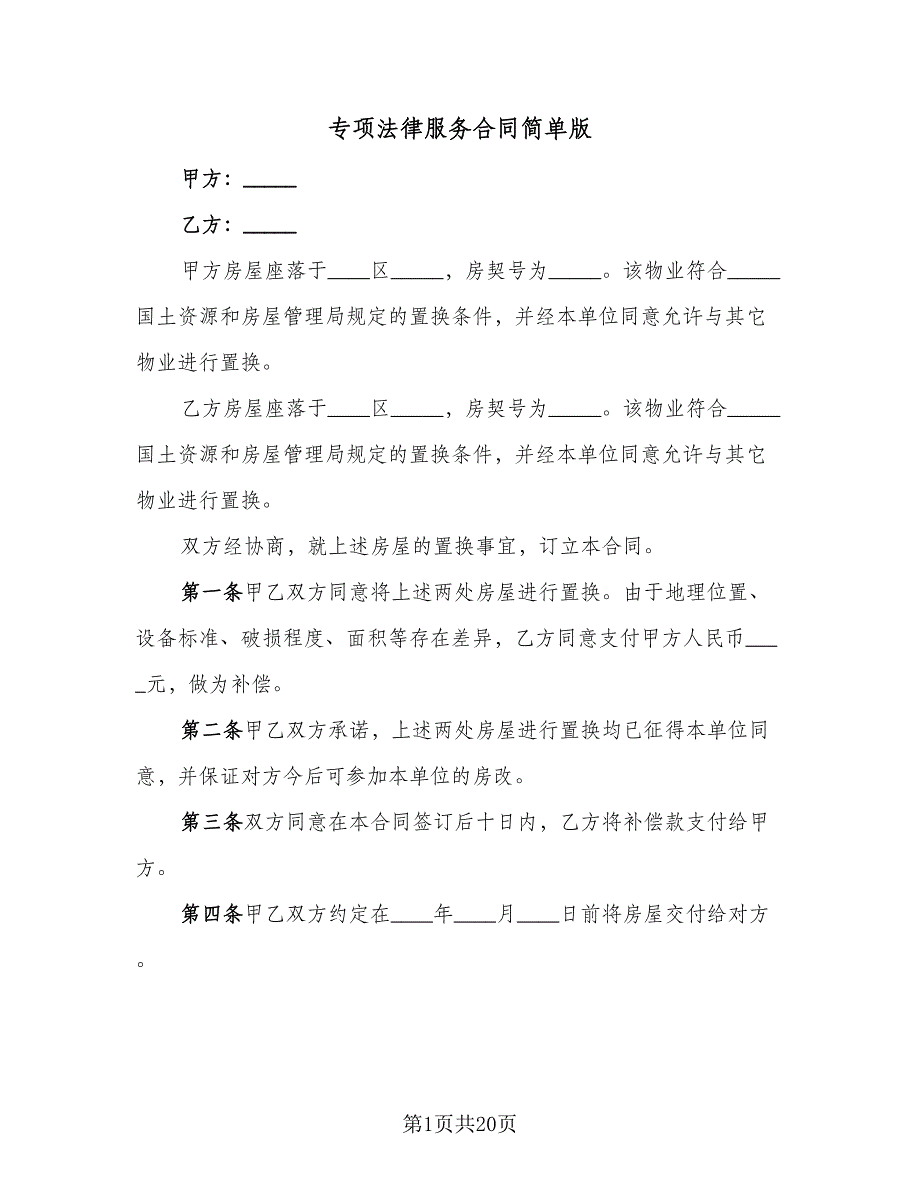 专项法律服务合同简单版
甲方：_____
乙方：_____
甲方房屋座落于____区_____，房契号为_____。该物业符合_____
国土资源和房屋管理局规定的置换条件，并经本单位同意允许与其它
物业进行置换。
乙方房屋座落于____区_____，房契号为_____。该物业符合_____
国土资源和房屋管理局规定的置换条件，并经本单位同意允许与其它
物业进行置换。
双方经协商，就上述房屋的置换事宜，订立本合同。
第一条甲乙双方同意将上述两处房屋进行置换。由于地理位置、
设备标准、破损程度、面积等存在差异，乙方同意支付甲方人民币___
_元，做为补偿。
第二条甲乙双方承诺，上述两处房屋进行置换均已征得本单位同
意，并保证对方今后可参加本单位的房改。
第三条双方同意在本合同签订后十日内，乙方将补偿款支付给甲
方。
第四条甲乙双方约定在____年____月____日前将房屋交付给对方
。
第1页共20页